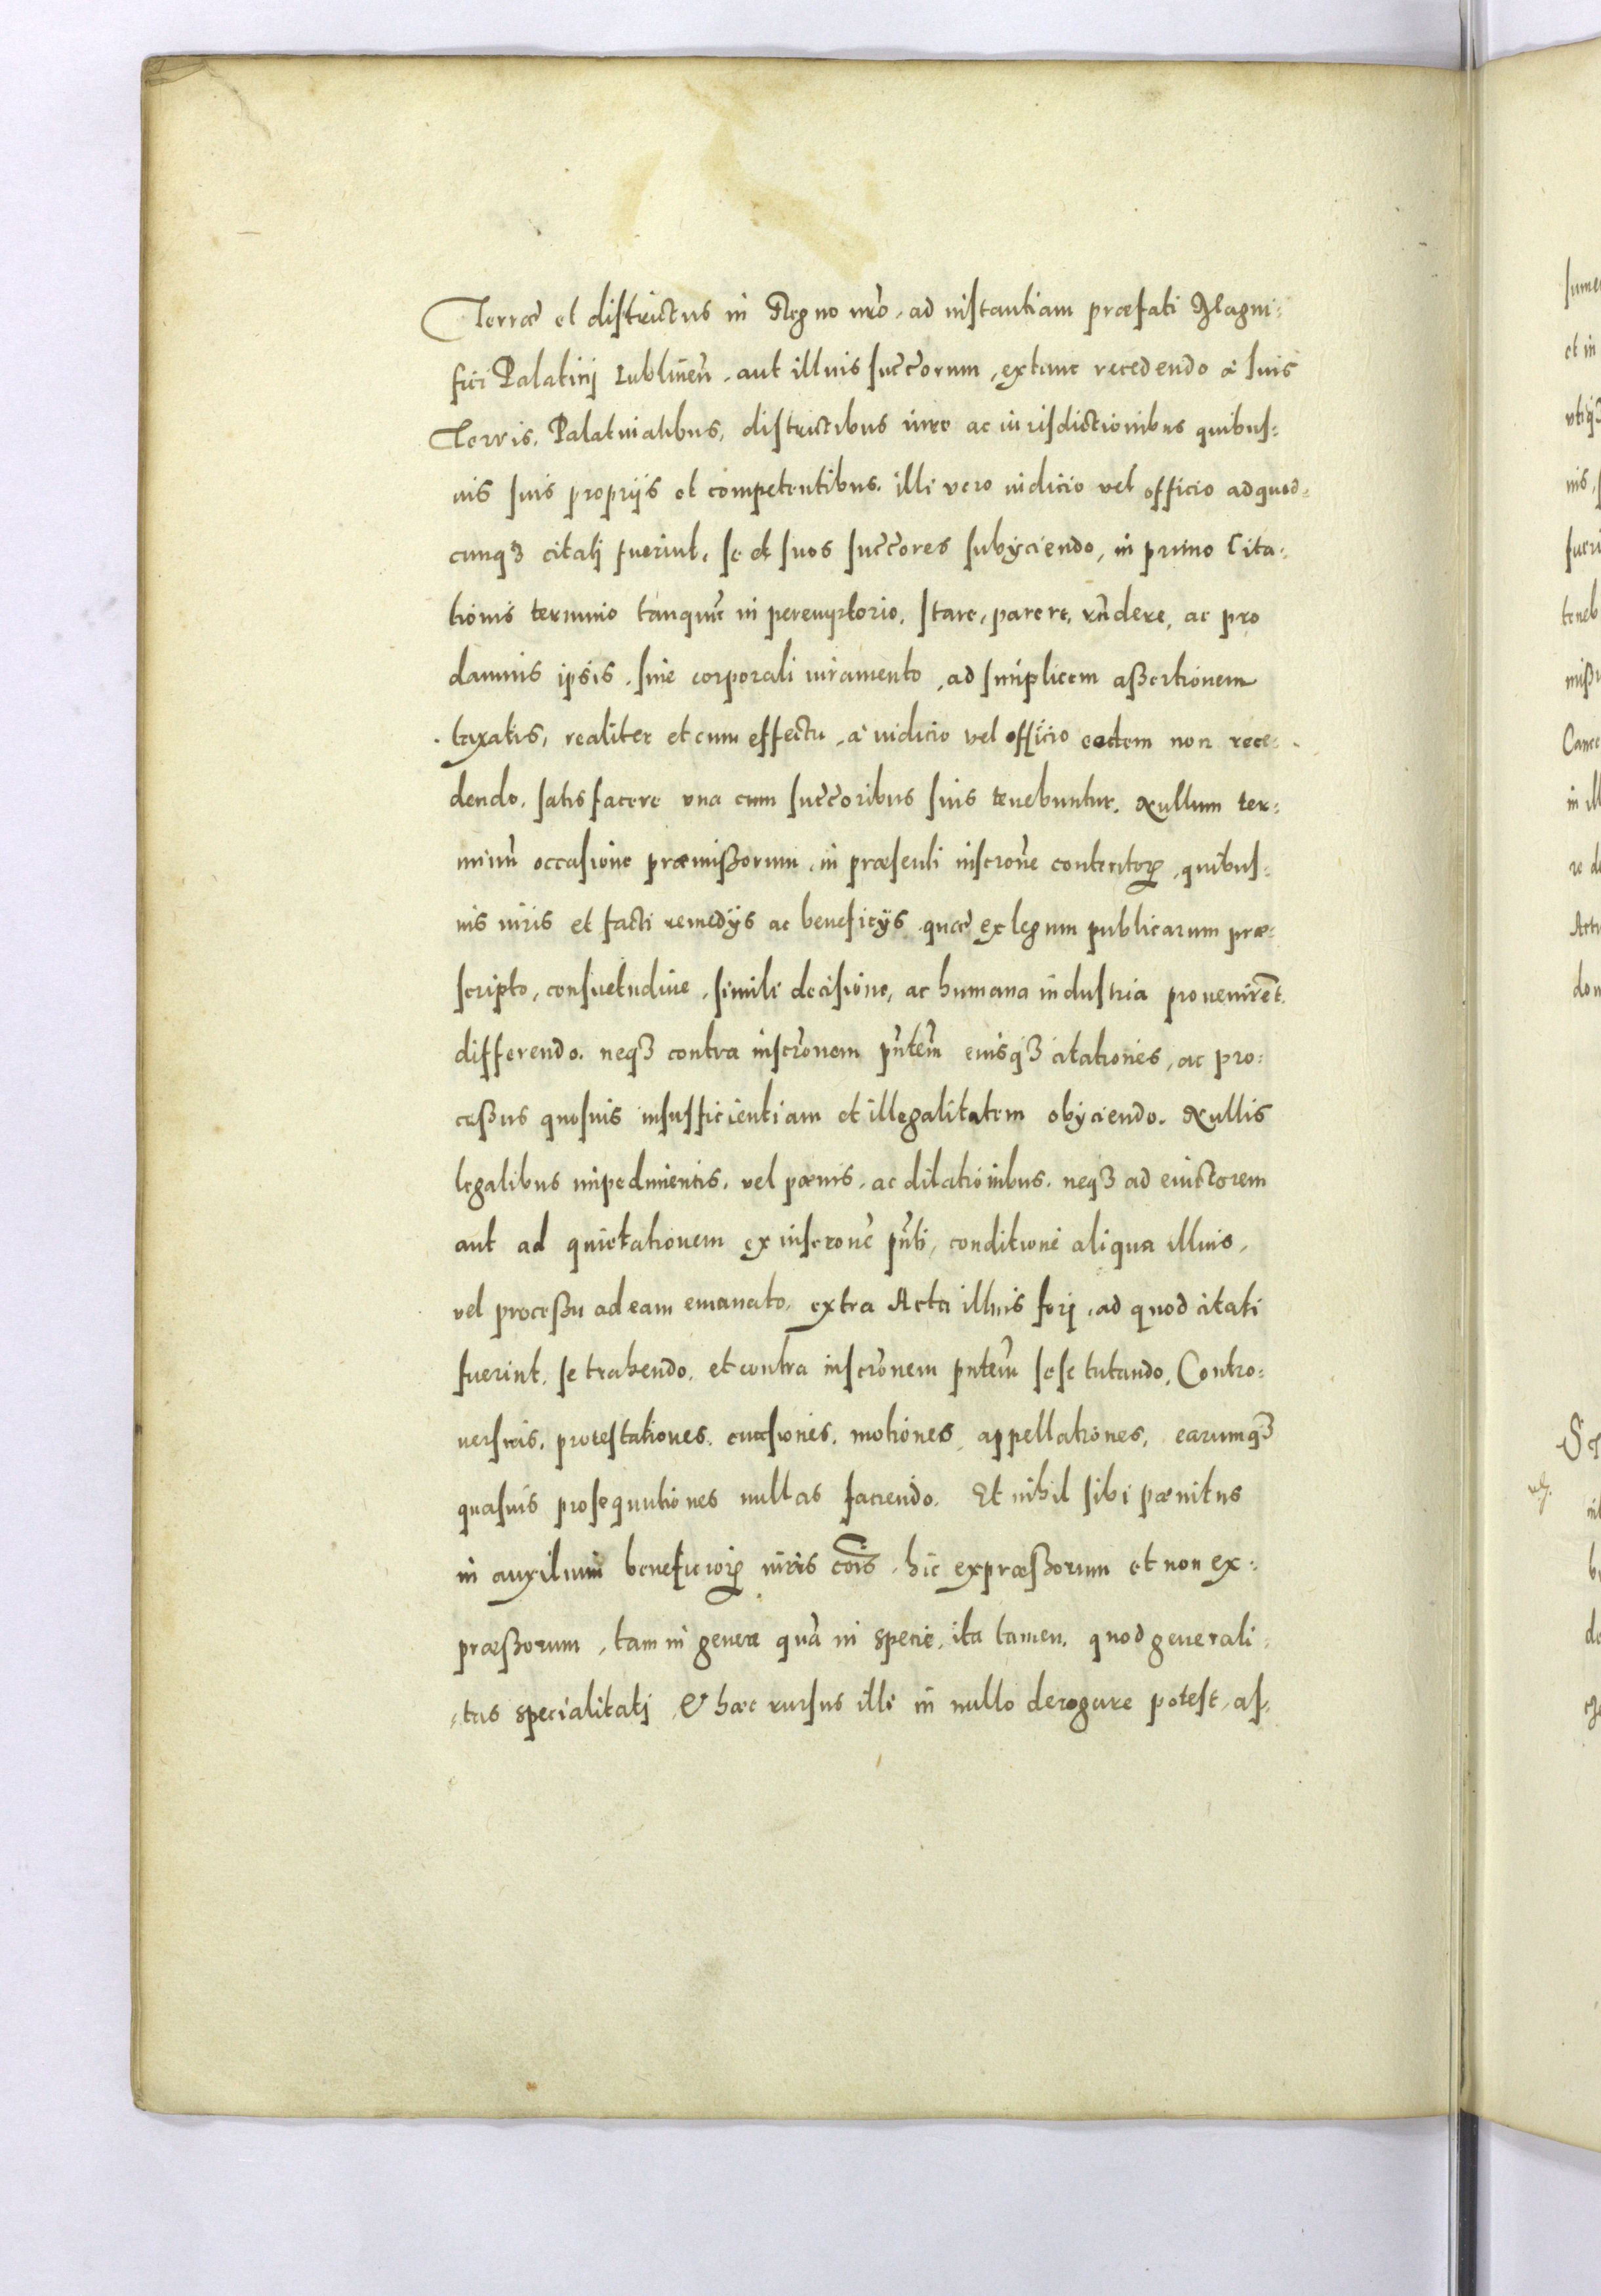 Terræ et districtus in Regno nr̃o, ad instantiam præfati Magni:
fici Palatinj Lublineñ. aut illius succ̃orum, extunc recedendo à suis
Terris, Palatinatibus, districtibus iure ac iurisdictionibus quibus:
uis suis proprijs et competentibus, illi vero iudicio vel officio ad quod:
cunq3 citatj fuerint, se et suos succ̃ores subijciendo, in primo Cita:
tionis termino tanquã in peremptorio, stare, parere, rñdere, ac pro
damnis ipsis, sine corporali iuramento, ad simplicem aßertionem
taxatis, realiter et cum effectu, à iudicio vel officio eodem non rece:
dendo, satisfacere vna cum succ̃oribus suis tenebuntur. Nullum ter:
minũ occasione præmißorum, in præsenti inscr̃one contentoꝝ, quibus:
uis iuris et facti remedijs ac beneficijs quæ ex legum publicarum præ:
scripto, consuetudine, simili decisione, ac humana industria prouenirẽt.
differendo, neq3 contra inscr̃onem pñtem̃ eiusq3 citationes, ac pro:
ceßus quosuis insufficientiam et illegalitatem obijciendo. Nullis
legalibus impedimentis, vel pœnis, ac dilationibus, neq3 ad euictorem
aut ad quietationem ex inscrone pñti, conditione aliqua illius,
vel proceßu ad eam emanato, extra Acta illius forj, ad quod citati
fuerint, se trahendo, et contra inscr̃onem pñtem̃ sese tutando, Contro:
uersias, protestationes, euasiones, motiones, appellationes, earumq3
quasuis prosequutiones nullas faciendo. Et nihil sibi pœnitus
in auxilium beneficioꝝ iuris cõis, hic expræßorum et non ex:
præßorum, tam in genere quã in specie, ita tamen, quod generali:
tas specialitatj, & hæc rursus illi in nullo derogare potest, as: